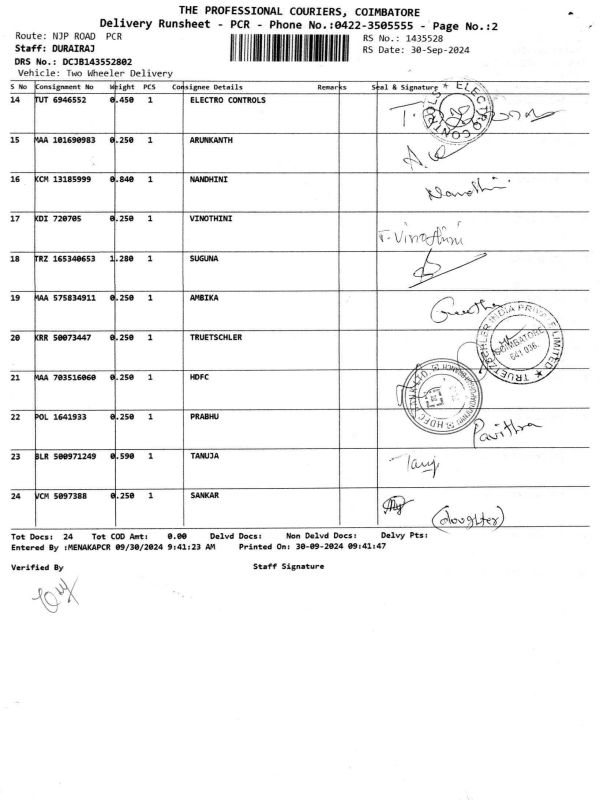 THE PROFESSIONAL COURIERS, COIMBATORE
Delivery Runsheet - PCR - Phone No.:0422-3505555 - Page No.:2
Route: NJP ROAD PCR
RS No.: 1435528
Staff: DURAIRAJ
RS Date: 30-Sep-2024
DRS No.: DCJB143552802
Vehicle: Two Wheeler Delivery
S No Consignment No Weight PCS Consignee Details Remarks Seal & Signature
14 TUT 6946552 0.450 1 ELECTRO CONTROLS
ELECTRO CONTROLS
15 MAA 101690983 0.250 1 ARUNKANTH
16 KCM 13185999 0.840 1 NANDHINI Nandhini
17 KDI 720705 0.250 1 VINOTHINI T. Vinothini
18 TRZ 165340653 1.280 1 SUGUNA
19 MAA 575834911 0.250 1 AMBIKA
20 KRR 50073447 0.250 1 TRUETSCHLER
TRUETZSCHLER INDIA PRIVATE LIMITED
COIMBATORE
641 036.
21 MAA 703516060 0.250 1 HDFC
HDFC BANK LTD.
22 POL 1641933 0.250 1 PRABHU Pavithra
23 BLR 500971249 0.590 1 TANUJA Tanuj
24 VCM 5097388 0.250 1 SANKAR (daughter)
Tot Docs: 24 Tot COD Amt: 0.00 Delvd Docs: Non Delvd Docs: Delvy Pts:
Entered By :MENAKAPCR 09/30/2024 9:41:23 AM Printed On: 30-09-2024 09:41:47
Verified By Staff Signature